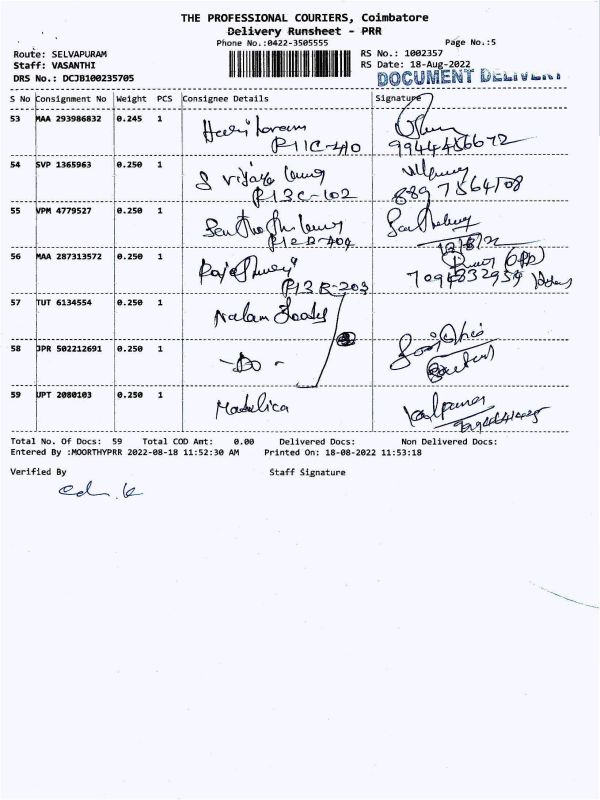 THE PROFESSIONAL COURIERS, Coimbatore
Delivery Runsheet - PRR
Phone No.:0422-3505555
Page No.:5
Route: SELVAPURAM
RS No.: 1002357
Staff: VASANTHI
RS Date: 18-Aug-2022
DRS No.: DCJB100235705
DOCUMENT DELIVERY
S No Consignment No Weight PCS Consignee Details Signature
53 MAA 293986832 0.245 1
9944456672
54 SVP 1365963 0.250 1
S Vijaya
R13C-102
55 VPM 4779527 0.250 1
56 MAA 287313572 0.250 1
R13B-203
7094832954
57 TUT 6134554 0.250 1 Nalam Foods
58 JPR 502212691 0.250 1 -Do-
59 UPT 2080103 0.250 1
Total No. Of Docs: 59 Total COD Amt: 0.00 Delivered Docs: Non Delivered Docs:
Entered By :MOORTHYPRR 2022-08-18 11:52:30 AM Printed On: 18-08-2022 11:53:18
Verified By Staff Signature